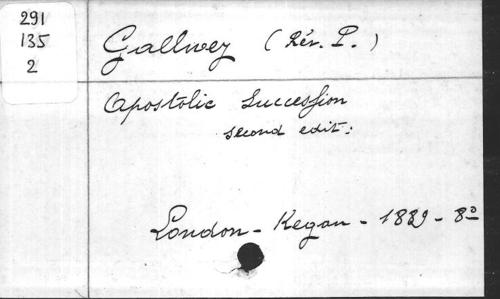 291
135
2
Gallwey (Rév. P.)
Apostolic Succession
second edit:
London - Kegan - 1889 - 8º